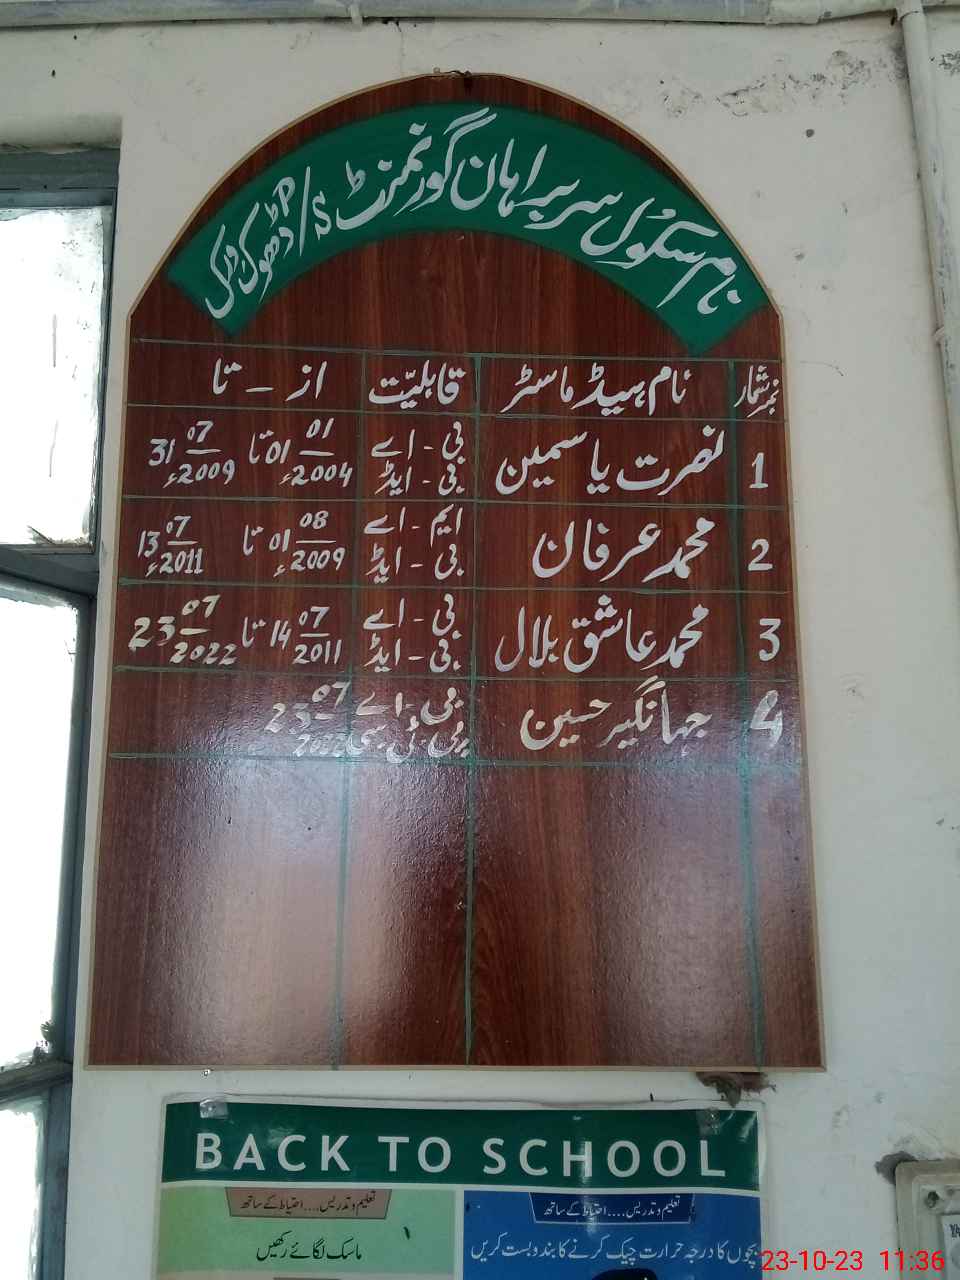 نام سکول سربراہان گورنمنٹ P/S ڈھوک ٹلی
نمبر شمار نام ہیڈ ماسٹر قابلیّت از - تا
1 نصرت یاسمین بی-اے بی-ایڈ 01 01 2004ء تا 31 07 2009ء
2 محمد عرفان ایم-اے بی-ایڈ 01 08 2009ء تا 13 07 2011ء
3 محمد عاشق بلال بی-اے بی-ایڈ 14 07 2011 تا 23 07 2022
4 جہانگیر حسین بی-اے پی-ٹی-سی 23 07 2022
BACK TO SCHOOL
تعلیم و تدریس.... احتیاط کے ساتھ
ماسک لگائے رکھیں
تعلیم و تدریس.... احتیاط کے ساتھ
بچوں کا درجہ حرارت چیک کرنے کا بندوبست کریں
23-10-23 11:36